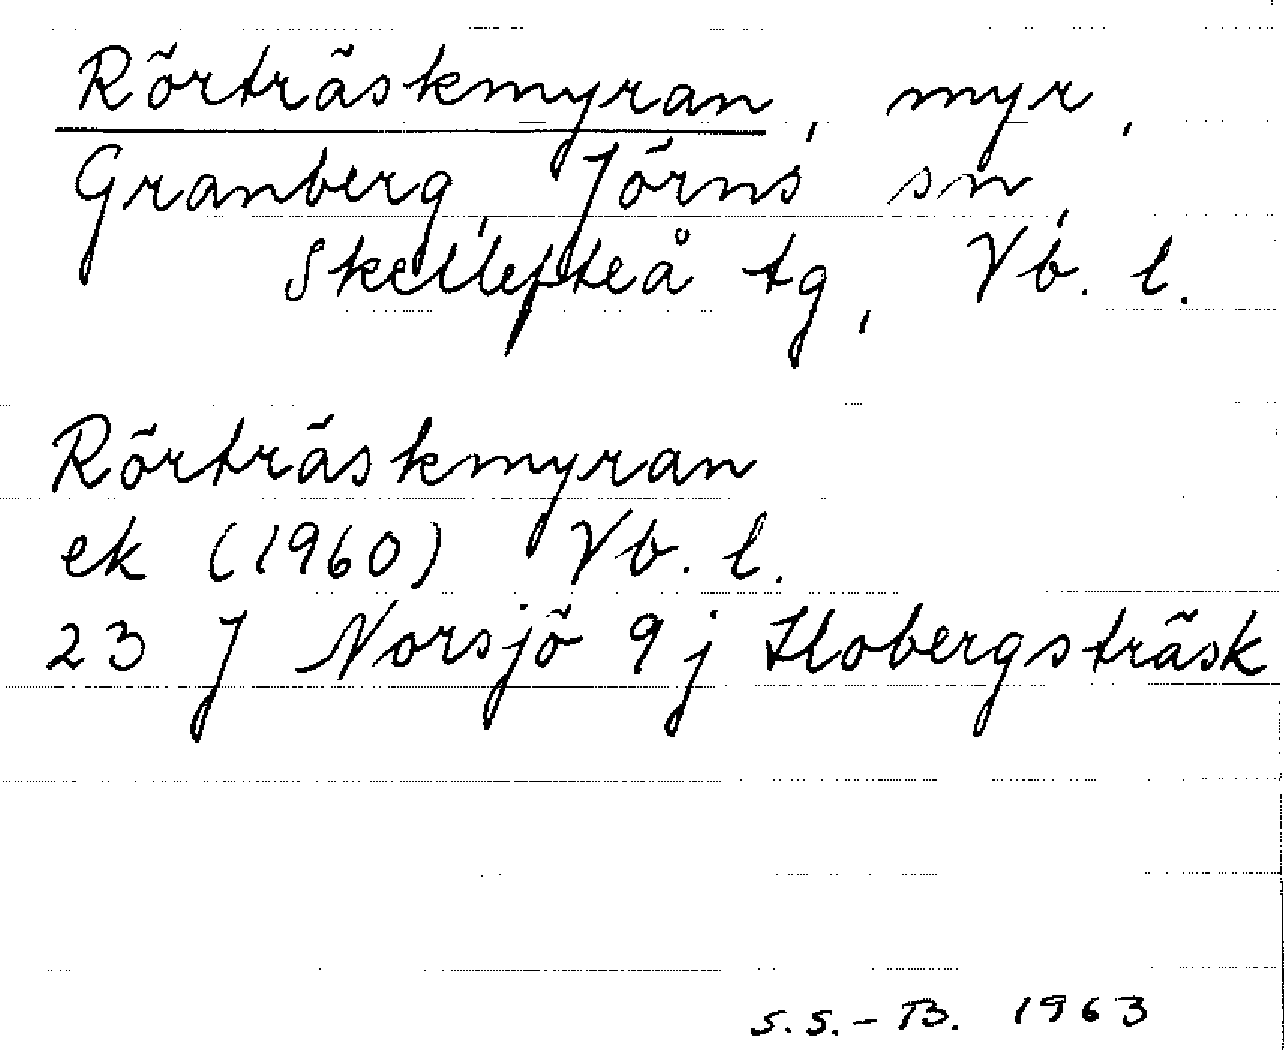 Rörträskmyran, myr,
Granberg, Jörns sn,
Skellefteå tg, Vb. l.
Rörträskmyran
ek (1960) Vb. l.
23 J Norsjö 9 j Hobergsträsk
S.S.-B. 1963